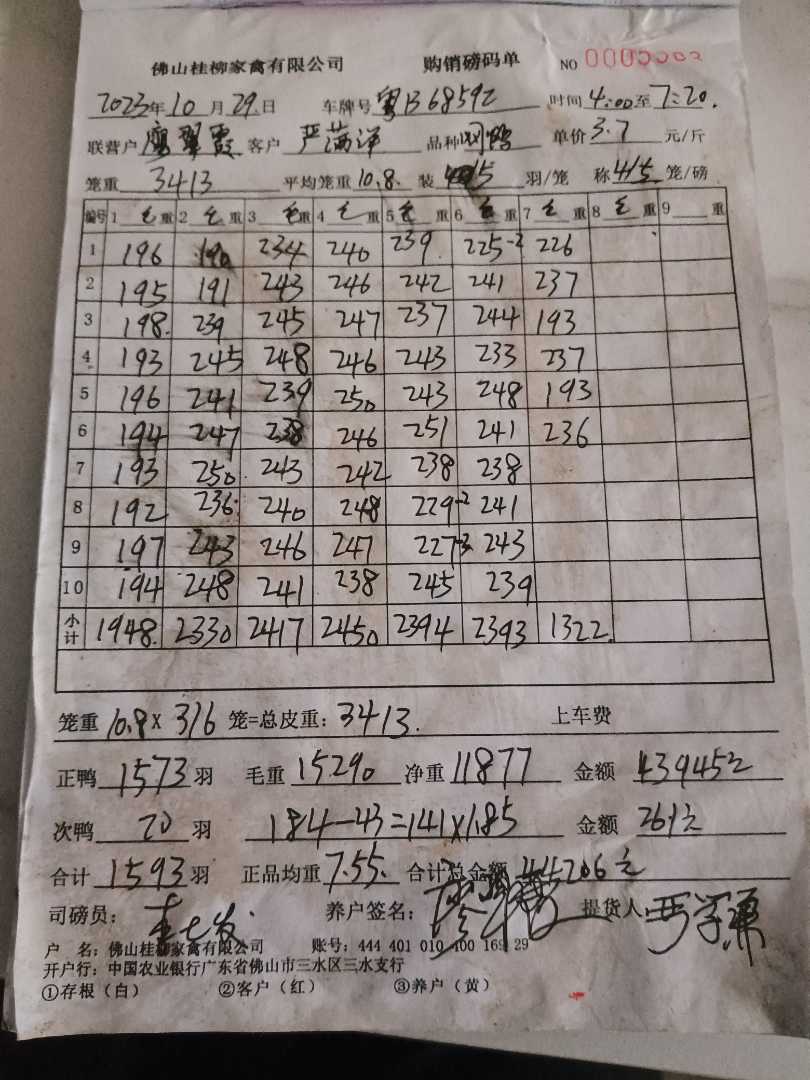 佛山桂柳家禽有限公司 购销磅码单 NO
2023年10月29日 车牌号 粤B68592 时间4:00至7:20.
联营户 廖翠霞 客户 严满洋 品种 单价3.7 元/斤
笼重 3413 平均笼重10.8. 装 5 羽/笼 称4/5笼/磅
编号 1 毛 重 2 毛 重 3 毛 重 4 毛 重 5 毛 重 6 毛 重 7 毛 重 8 毛 重 9 重
1 196 190 234 240 239. 225-2 226
2 195 191 243 246 242 241 237
3 198. 239 245 247 237 244 193
4 193 245 248 246 243 233 237
5 196 241 239 250 243 248 193
6 194 247 238 246 251 241 236
7 193 250 243 242 238 238
8 192 236. 240 248 229-2 241
9 197 243 246 247 227-3 243
10 194 248 241 238 245 239
小计 1948. 2330 2417 2450 2394 2393 1322
笼重 10.8 X 316 笼=总皮重：3413. 上车费
正鸭 1573 羽 毛重 15290 净重 11877 金额 43945元
次鸭 20 羽 184-43=141X1.85 金额 261元
合计 1593 羽 正品均重 7.55. 合计总金额 44206元
司磅员： 养户签名： 提货人
户 名：佛山桂柳家禽有限公司 账号：444 401 010 400 169 29
开户行：中国农业银行广东省佛山市三水区三水支行
①存根（白） ②客户（红） ③养户（黄）